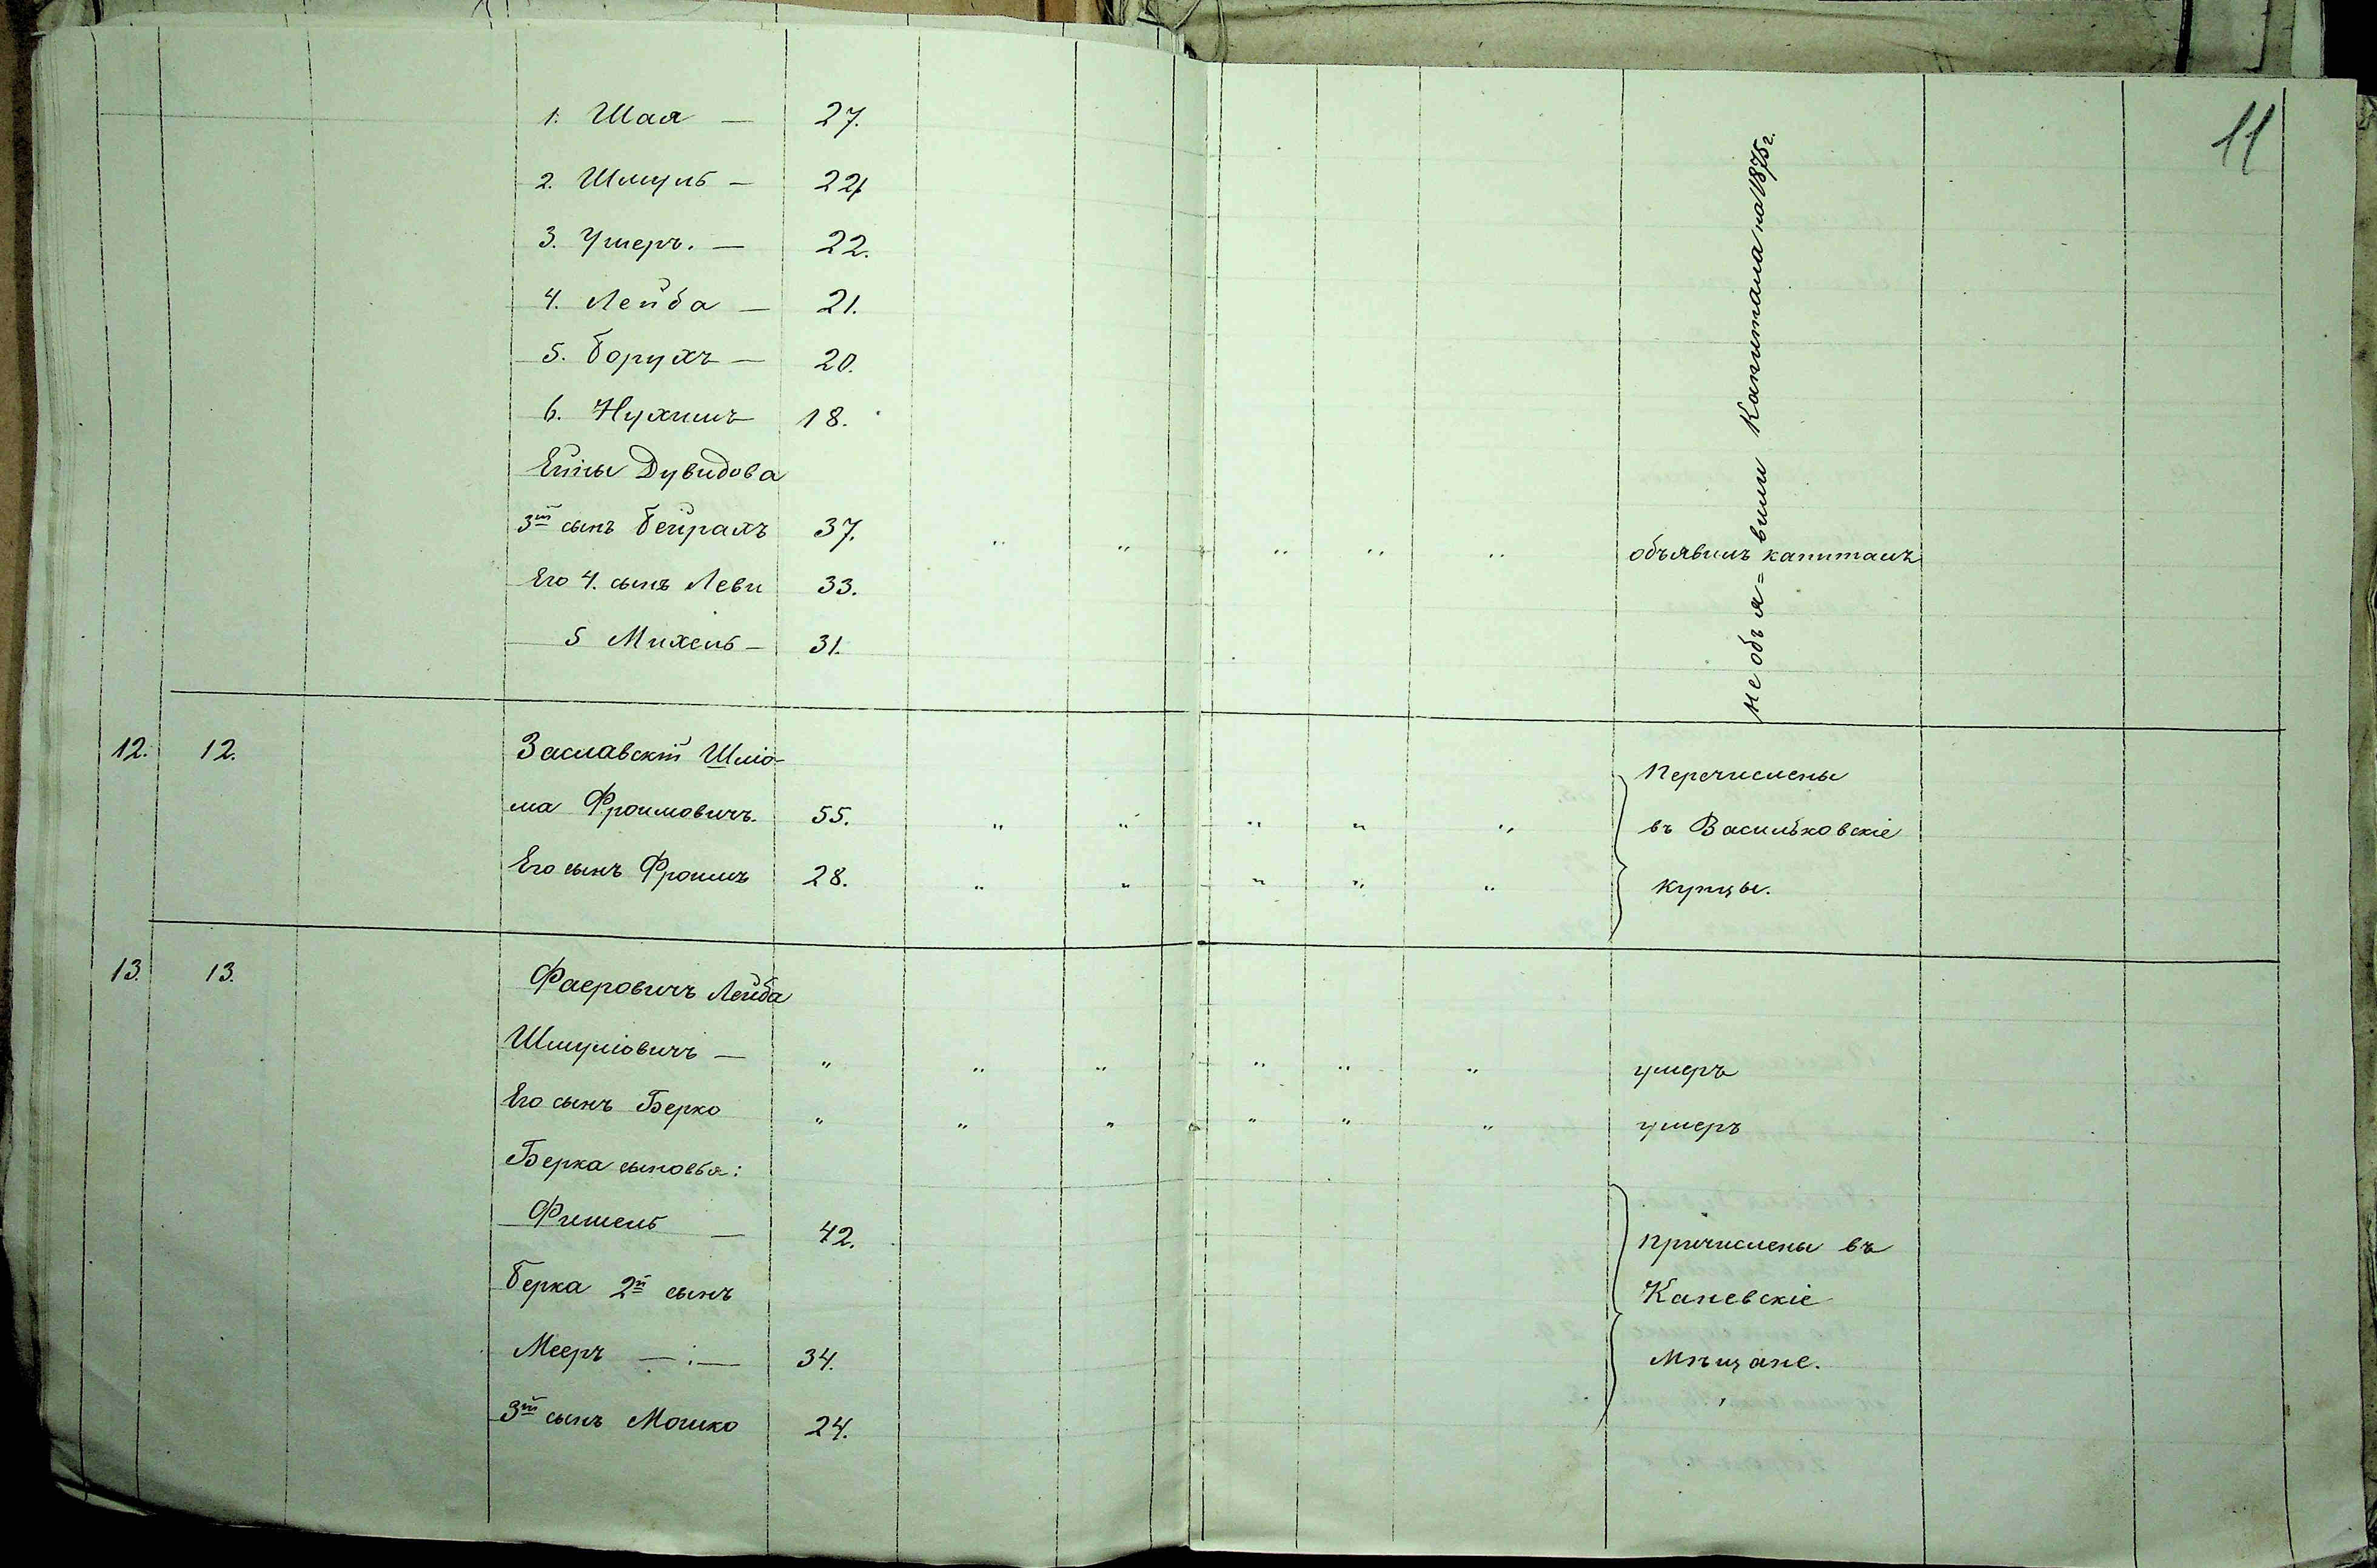 11
1. Шая — 27.
2. Шмуль — 24
3. Ушеръ. — 22.
4. Лейба — 21.
5. Борухъ — 20.
6. Нухимъ 18.
Дувидова
3й сынъ Бейрахъ 37. " " " " " объявилъ капиталъ
Его 4. сынъ Леви 33.
5 Михель — 31.
не объя=вили Капитала на 1875 г.
12. 12. Заславскій Шліо-
ма Фроимовичъ. 55. " " " " "
Его сынъ Фроимъ 28. " " " " "
Перечислены
въ Васильковскіе
купцы.
13. 13. Фаеровичъ Лейба
Шмуліовичъ — " " " " " " умеръ
Его сынъ Берко " " " " " " умеръ
Берка сыновья:
Фишель — 42.
Берка 2й сынъ
Мееръ —:— 34.
3й сынъ Мошко 24.
Причислены въ
Каневскіе
Мѣщане.